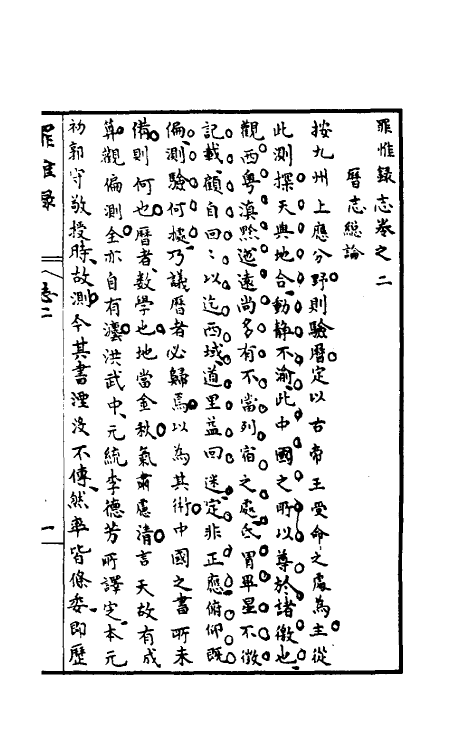 罪惟錄志卷之二
曆志總論
按九州上應分野則驗曆定以古帝王受命之處為主從
此測探天與地合動靜不渝此中國之所以尊於諸徼也
觀西粵滇黔遼遠尚多有不當列宿之處氐胃畢星不徼
記載顧自回回以迄西域道里益回迷定非正應俯仰既
偏測驗何據乃議曆者必歸焉以為其術中國之書所未
備則何也曆者數學也地當金秋氣肅慮清言天故有成
算觀偏測全亦自有濛洪武中元統李德芳所譯定本元
初郭守敬授時故測今其書湮沒不傳然率皆條委即歷
罪惟錄
志二
一